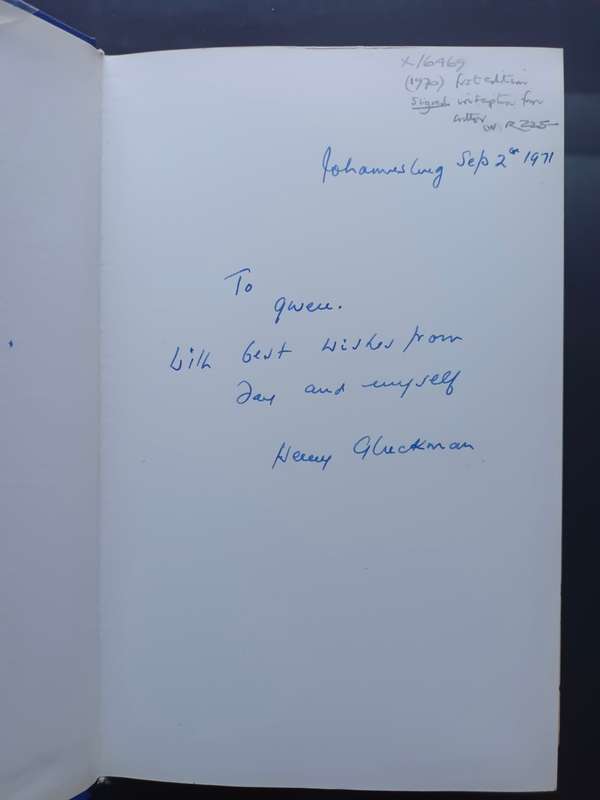 X/6469
(1970) first edition
Signed inscription from
author
R225
Johannesburg Sep 2 1971
To
Gwen.
With best wishes from
Jay and myself
Henry Gluckman